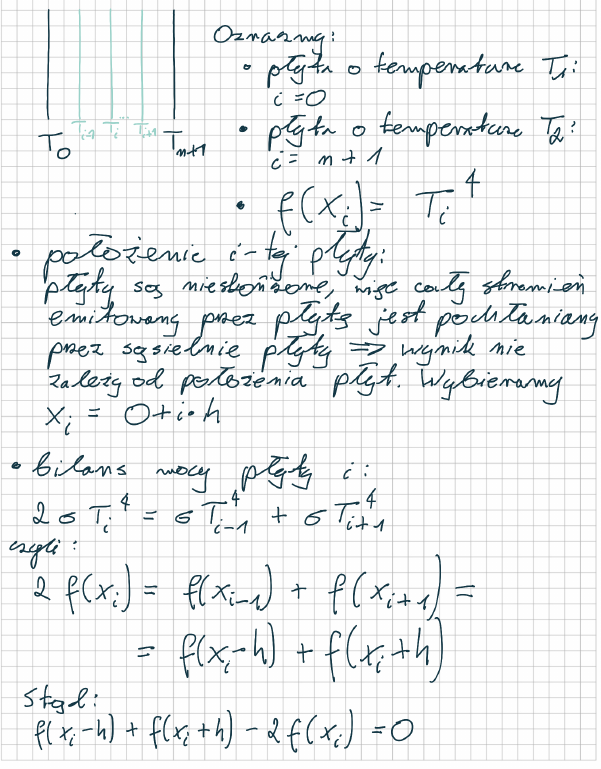 Oznaszmy:
• płyta o temperaturze T₁:
i = 0
• płyta o temperaturze T₂:
i = n + 1
T₀ Tᵢ₋₁ Tᵢ ... Tᵢ₊₁ Tₙ₊₁
• f(xᵢ) = Tᵢ⁴
• położenie i-tej płyty:
płyty są nieskończone, więc cały strumień
emitowany przez płytę jest pochłaniany
przez sąsiednie płyty ⇒ wynik nie
zależy od położenia płyt. Wybieramy
xᵢ = 0 + i · h
• bilans mocy płyty i:
2 σ Tᵢ⁴ = σ Tᵢ₋₁⁴ + σ Tᵢ₊₁⁴
czyli:
2 f(xᵢ) = f(xᵢ₋₁) + f(xᵢ₊₁) =
= f(xᵢ - h) + f(xᵢ + h)
Stąd:
f(xᵢ - h) + f(xᵢ + h) - 2 f(xᵢ) = 0